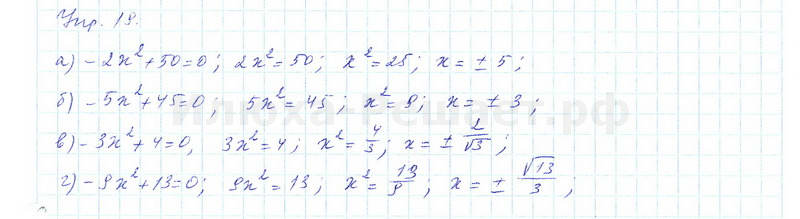 Упр. 19.
а) -2x²+50=0; 2x²=50; x²=25; x=±5;
б) -5x²+45=0; 5x²=45; x²=9; x=±3;
в) -3x²+4=0, 3x²=4; x²=4/3; x=±2/√3;
г) -9x²+13=0; 9x²=13; x²=13/9; x=±√13/3;
илюха-решает.рф